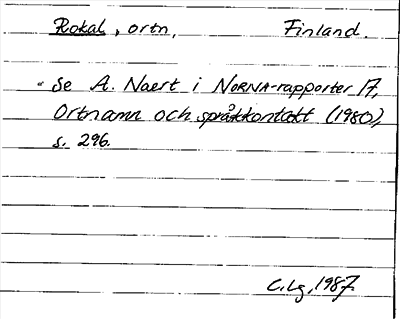 Rokal, ortn, Finland.
Se A. Naert i NORNA-rapporter 17,
Ortnamn och språkkontakt (1980),
s. 296.
C.Lg, 1987.